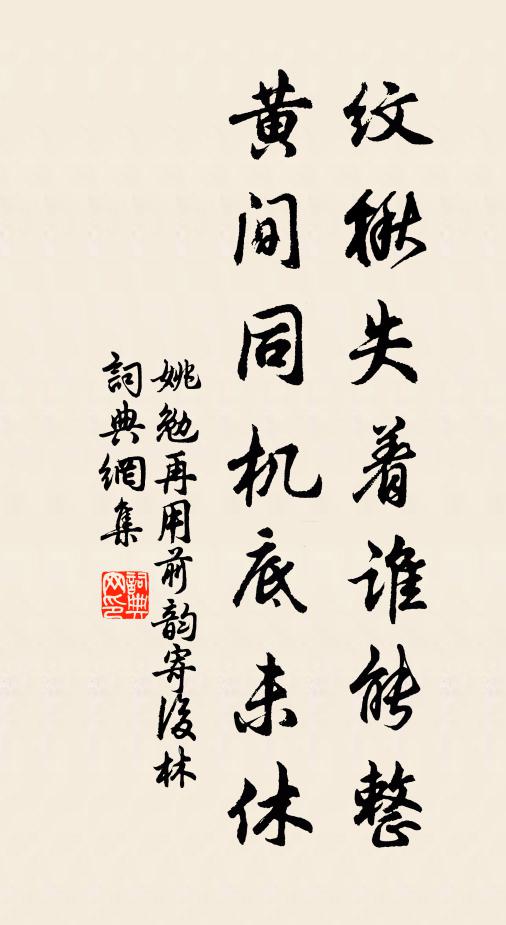 纹楸失着谁能整
黄间同机底未休
姚勉再用前韵寄後林
詞典網集
詞典网印